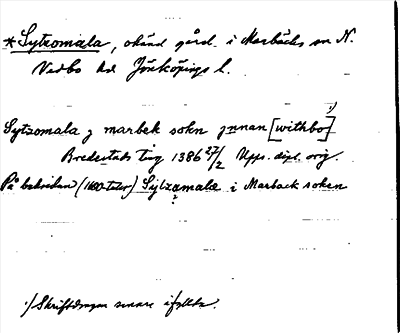 *Sytzomala, okänd gård i Marbäcks sn N.
Vedbo hd Jönköpings l.
Sytzomala j marbek sokn jnnan [withbo] 1)
Bredestads ting 1386 27/2 Upps. dipl. orig.
På baksidan (1600-talet) Sytzamale i Marback soken
1) Skriftdragen senare ifyllda.